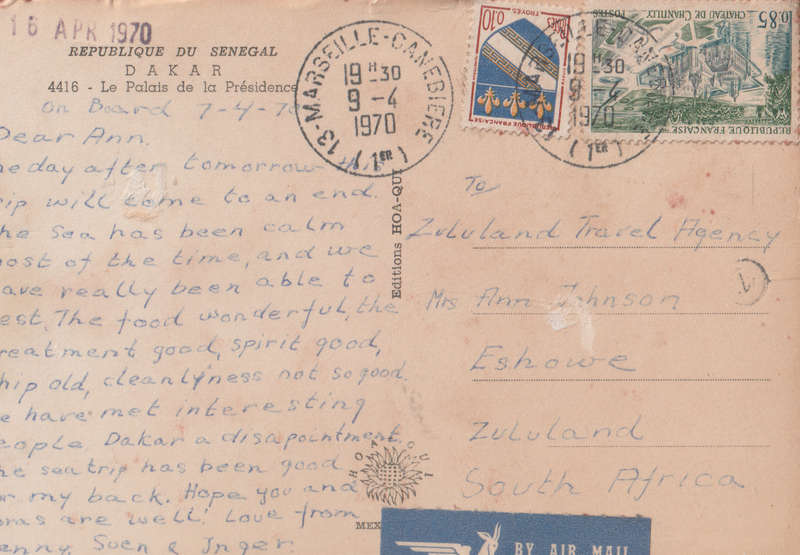 16 APR 1970
REPUBLIQUE DU SENEGAL
DAKAR
4416 - Le Palais de la Présidence
On Board 7-4-70
Dear Ann.
day after tomorrow
will come to an end.
he sea has been calm
ost of the time, and we
ave really been able to
est. The food wonderful, the
reatment good, spirit good,
hip old, cleanlyness not so good.
e have met interesting
eople. Dakar a disapointment.
he seatrip has been good
or my back. Hope you and
are well! Love from
enny, Sven & Inger.
13-MARSEILLE-CANEBIERE
19H30
9-4
1970
(1ER)
0.10
TROYES
REPUBLIQUE FRANÇAISE
POSTES
19 30
9
1970
(1ER)
CHATEAU DE CHANTILLY
0,85
POSTES
REPUBLIQUE FRANÇAISE
Editions HOA-QUI
HOA QUI
MEX
To
Zululand Travel Agency
Mrs Ann Johnson
Eshowe
Zululand
South Africa
1
BY AIR MAIL